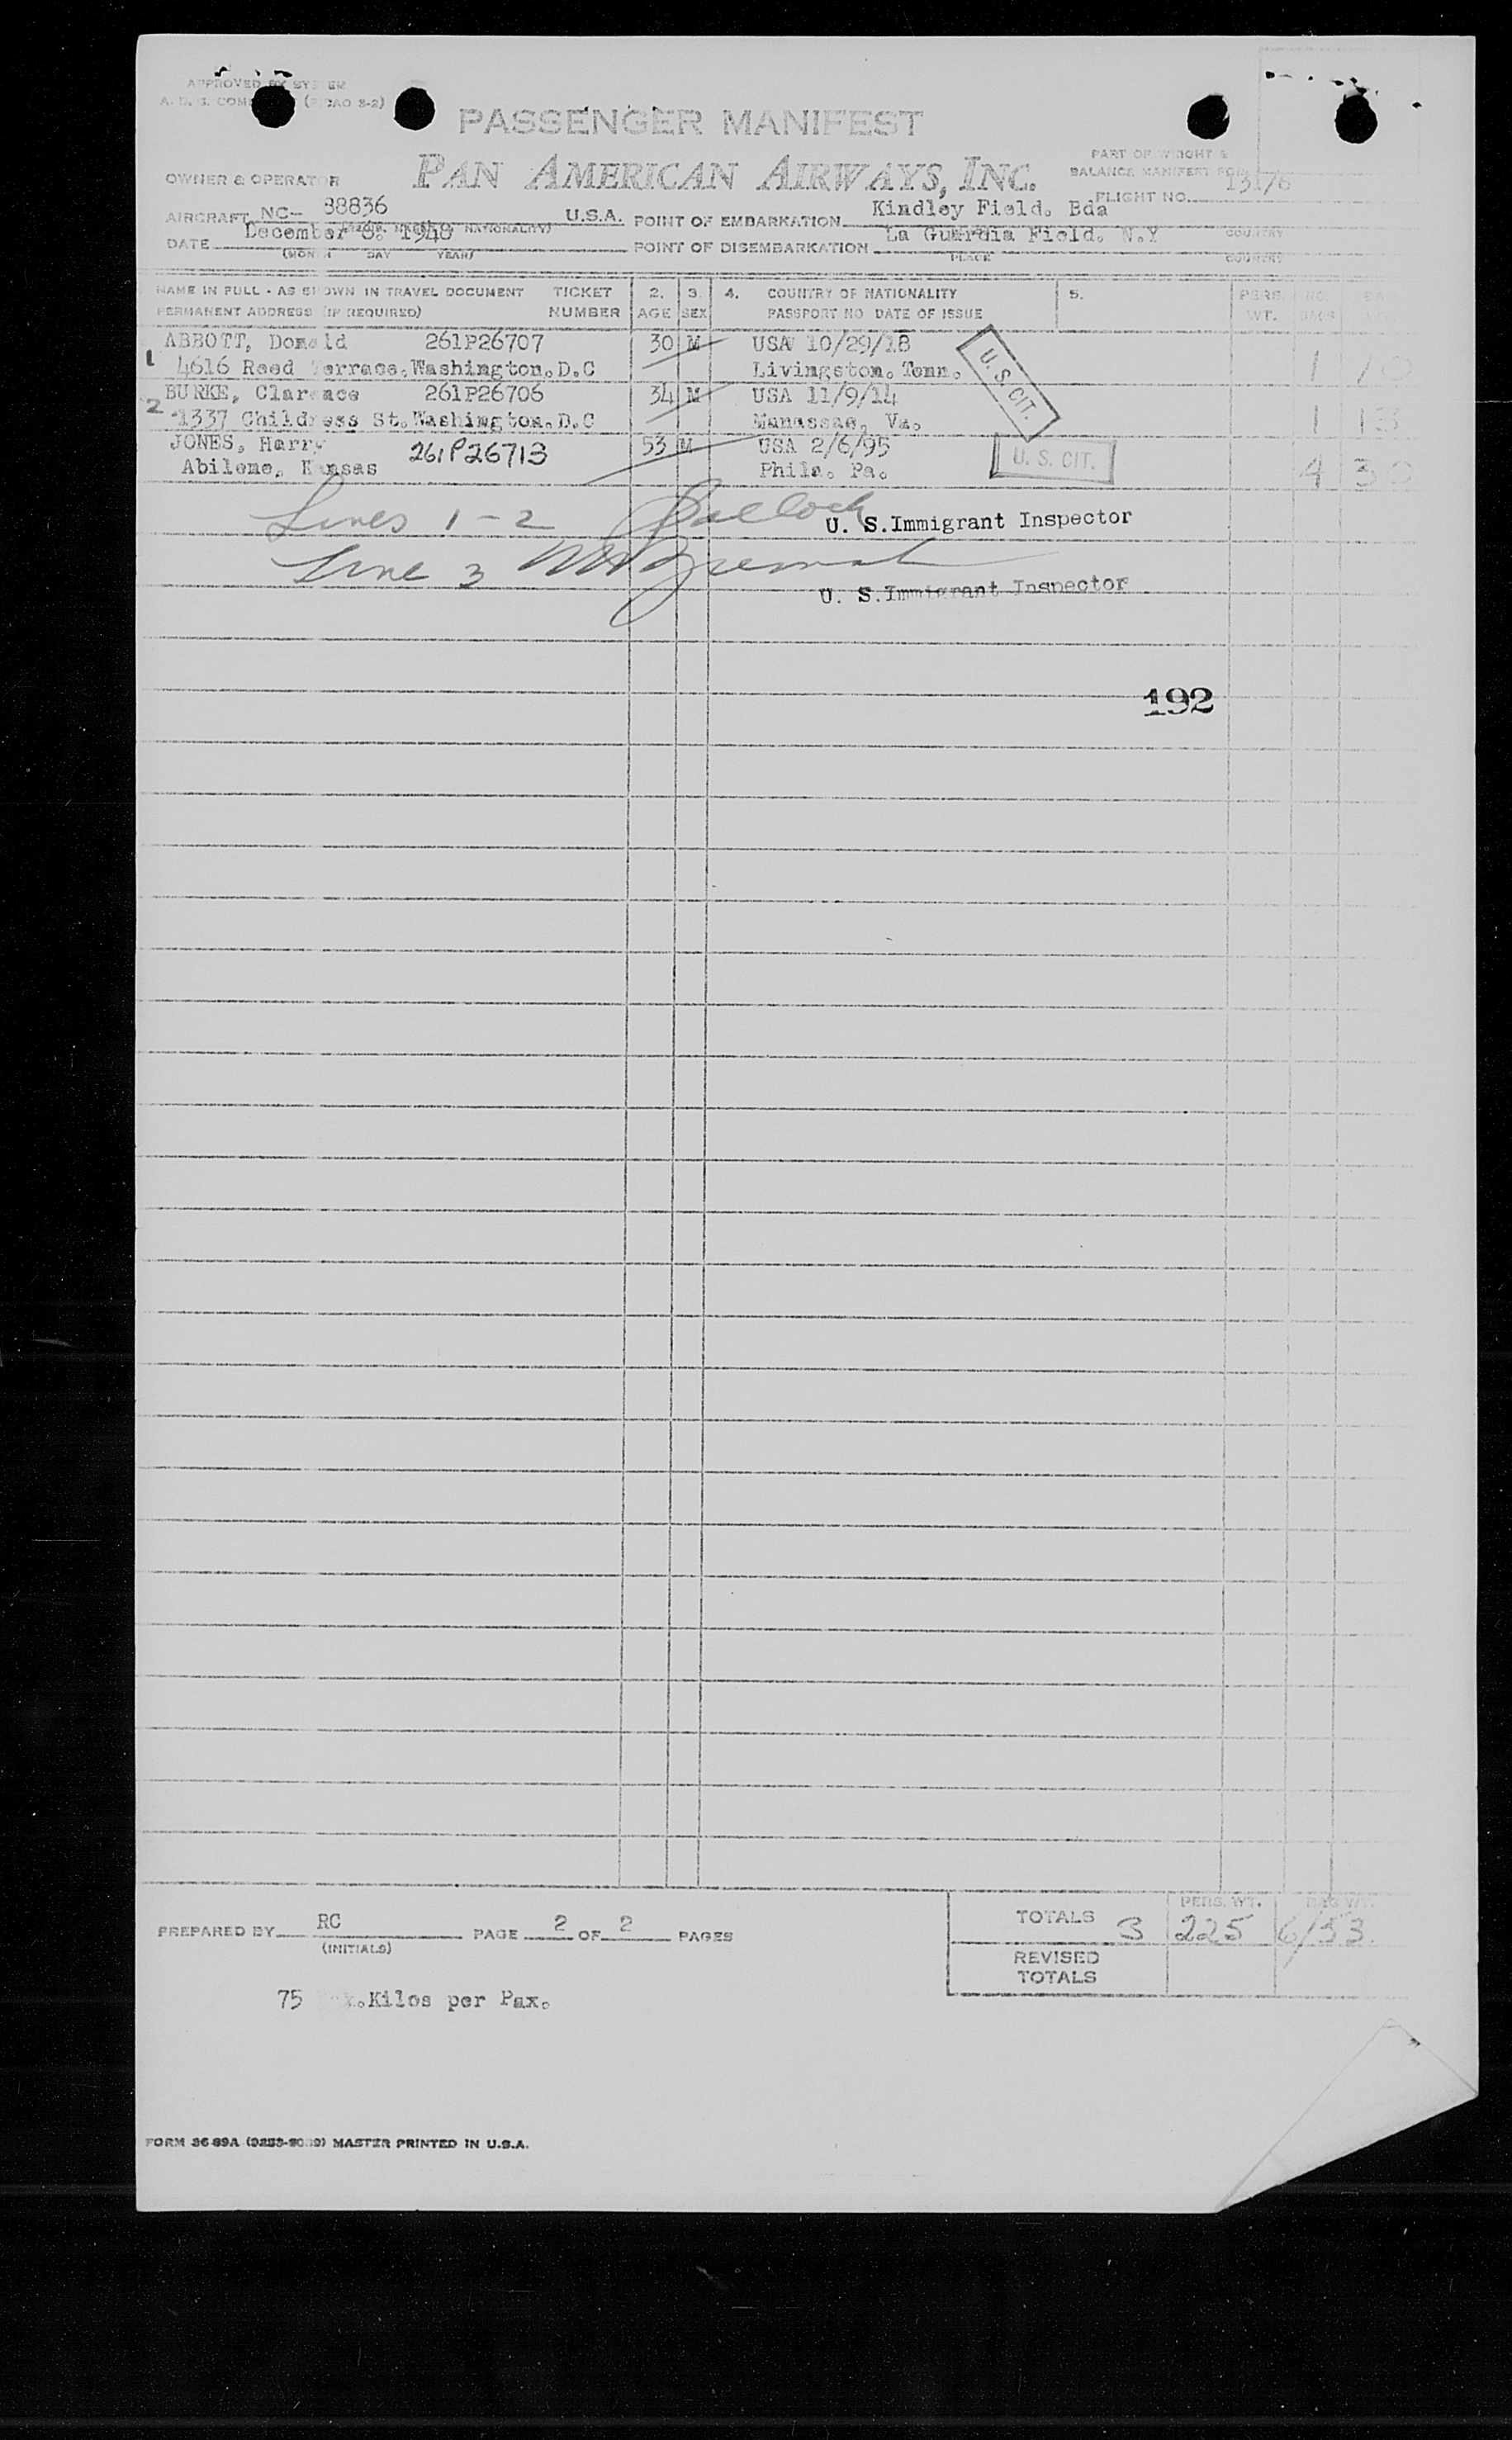 APPROVED BY SYSTEM
PASSENGER MANIFEST
PAN AMERICAN AIRWAYS, INC.
PART OF WEIGHT &
BALANCE MANIFEST FOR
OWNER & OPERATOR
FLIGHT NO. 131/6
AIRCRAFT NC- 88836 U.S.A. POINT OF EMBARKATION Kindley Field. Bda
DATE December 8. 1948 POINT OF DISEMBARKATION La Guardia Field. N.Y COUNTRY
(MONTH DAY YEAR) PLACE COUNTRY
NAME IN FULL - AS SHOWN IN TRAVEL DOCUMENT TICKET 2. 3. 4. COUNTRY OF NATIONALITY 5. PERS.
PERMANENT ADDRESS (IF REQUIRED) NUMBER AGE SEX PASSPORT NO DATE OF ISSUE WT.
ABBOTT, Donald 261P26707 30 M USA 10/29/18
1 4616 Reed Terrace,Washington.D.C Livingston. Tenn. 1 10
U. S CIT.
BURKE, Clarence 261P26706 34 M USA 11/9/14
2 1337 Childress St.Washington.D.C Manassas, Va. 1 13
JONES, Harry 261P26713 53 M USA 2/6/95 U. S. CIT.
Abilene, Kansas Phila. Pa. 4 30
Lines 1-2 U. S.Immigrant Inspector
Line 3
U. S.Immigrant Inspector
192
PREPARED BY RC PAGE 2 OF 2 PAGES
(INITIALS)
PERS. WT.
TOTALS 3 225 6/53
REVISED
TOTALS
75 .Kilos per Pax.
MASTER PRINTED IN U.S.A.